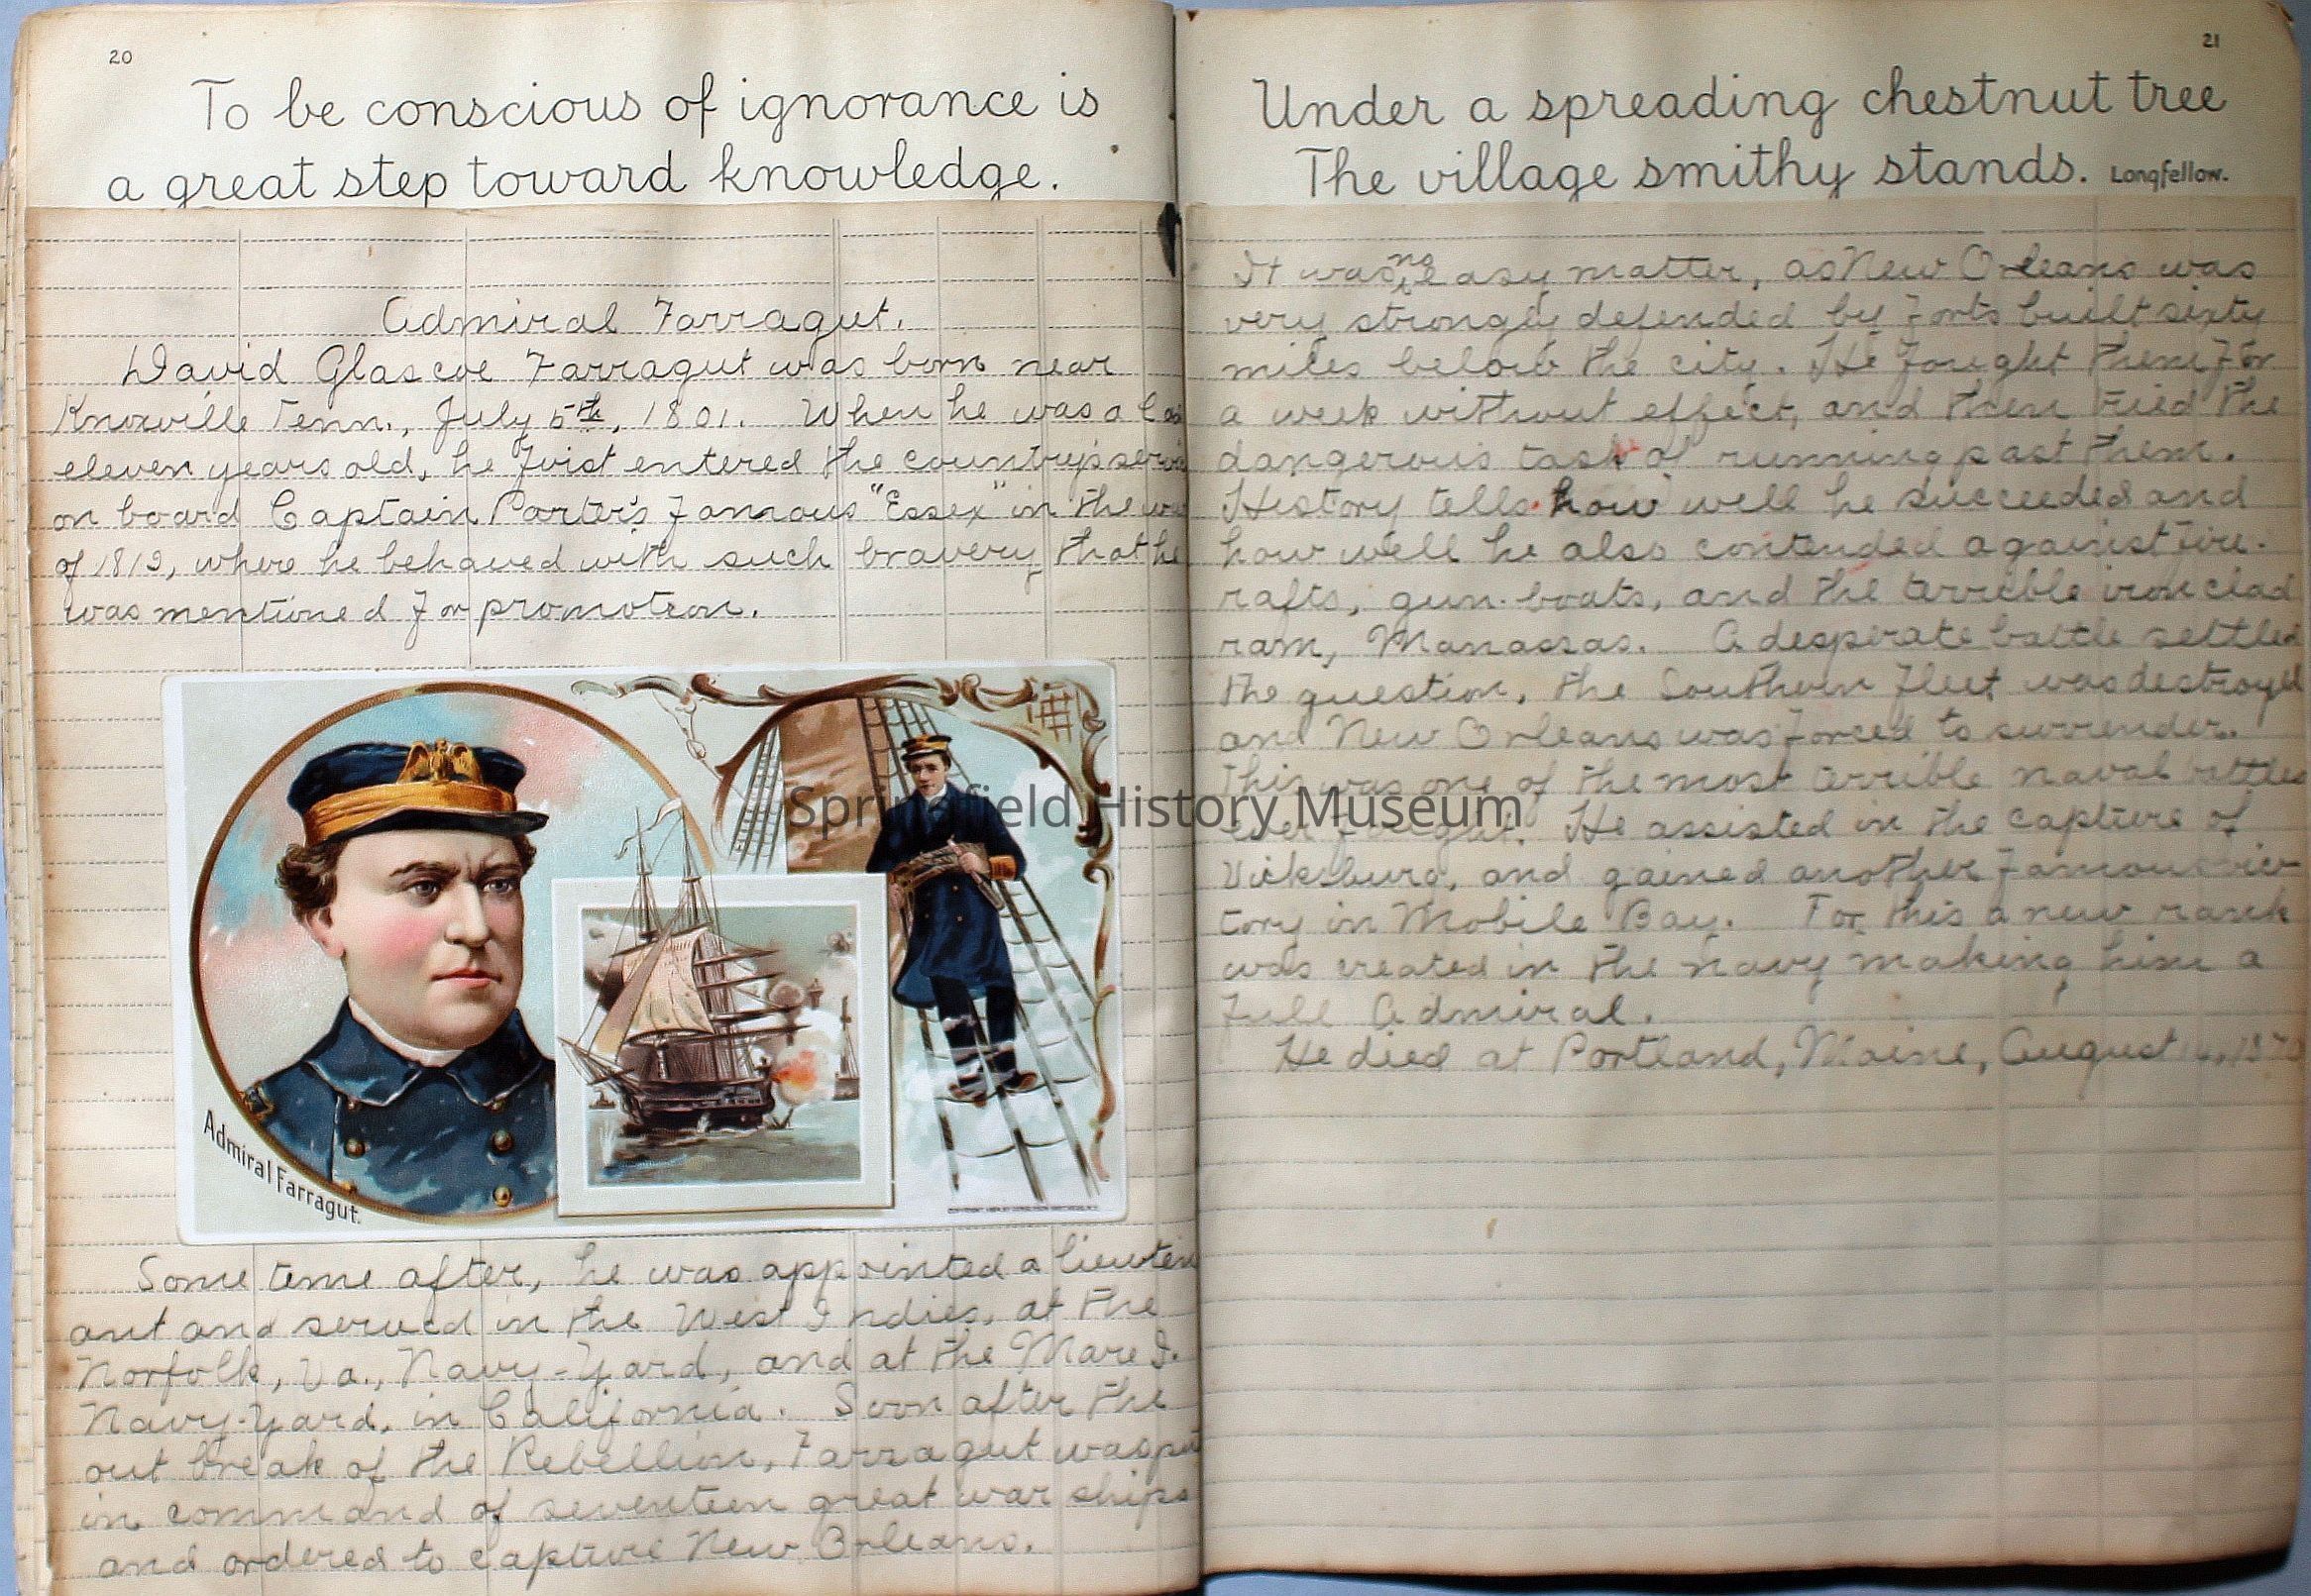 20
To be conscious of ignorance is
a great step toward knowledge.
Admiral Farragut.
David Glascoe Farragut was born near
Knoxville Tenn., July 5th, 1801. When he was a
eleven years old, he first entered the country's
on board Captain Porter's famous "Essex" in the
of 1812, where he behaved with such bravery that he
was mentioned for promotion.
Admiral Farragut.
Some time after, he was appointed a lieuten
ant and served in the West Indies, at the
Norfolk, Va., Navy-Yard, and at the Mare I.
Navy-Yard, in California. Soon after the
out break of the Rebellion, Farragut was put
in command of seventeen great war ships
and ordered to capture New Orleans.
21
Under a spreading chestnut tree
The village smithy stands. Longfellow.
It was no easy matter, as New Orleans was
very strongly defended by forts built sixty
miles below the city. He fought them for
a week without effect, and then tried the
dangerous task of running past them.
History tells how well he succeeded and
how well he also contended against fire-
rafts, gun-boats, and the terrible iron clad
ram, Manassas. A desperate battle settled
the question, the Southern fleet was destroyed
and New Orleans was forced to surrender.
This was one of the most terrible naval battles
ever fought. He assisted in the capture of
Vicksburg, and gained another famous vic-
tory in Mobile Bay. For this a new rank
was created in the navy making him a
full Admiral.
He died at Portland, Maine, August 14, 1870
Springfield History Museum